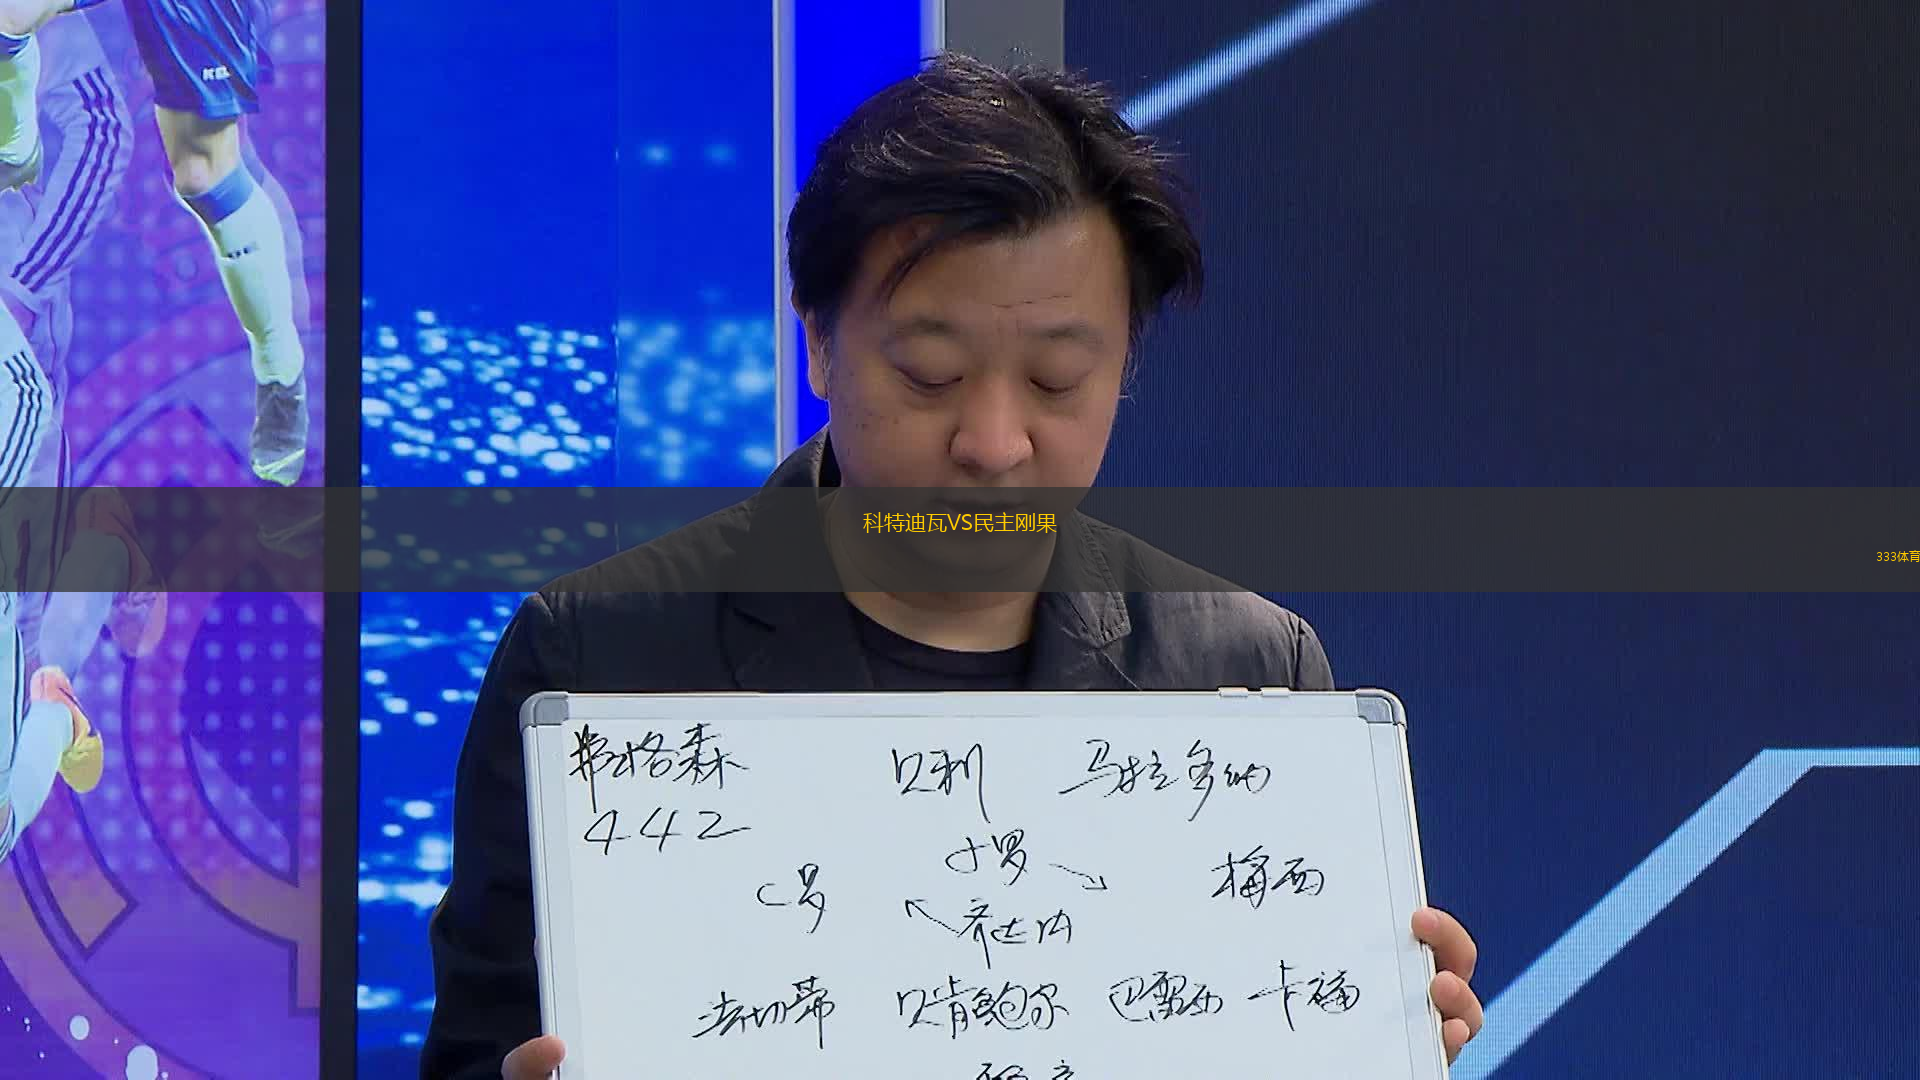 科特迪瓦VS民主刚果
333体育
弗格森 贝利 马拉多纳
442
小罗
C罗 梅西
齐达内
法切蒂 贝肯鲍尔 巴雷西 卡福